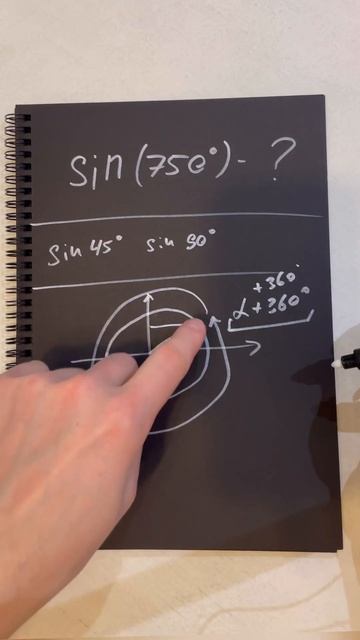 sin(750°) - ?
sin 45° sin 90°
+360°
α+360°